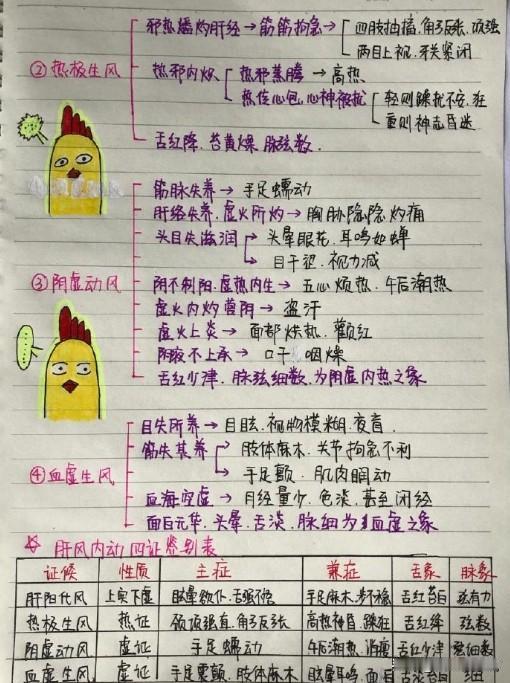 邪热燔灼肝经→筋脉拘急→四肢抽搐,角弓反张,项强
两目上视,牙关紧闭
②热极生风
热邪内炽
热邪蒸腾→高热
热传心包,心神被扰
轻则躁扰不安,狂
重则神志昏迷
舌红绛、苔黄燥、脉弦数.
筋脉失养→手足蠕动
肝络失养,虚火所灼→胸胁隐隐灼痛
头目失滋润
头晕眼花,耳鸣如蝉
目干涩,视力减
③阴虚动风
阴不制阳,虚热内生→五心烦热、午后潮热
虚火内灼营阴→盗汗
虚火上炎→面部烘热、颧红
阴液不上承→口干咽燥
舌红少津、脉弦细数,为阴虚内热之象
目失所养→目眩、视物模糊、夜盲
筋失其养
肢体麻木、关节拘急不利
手足颤、肌肉瞤动
④血虚生风
血海空虚→月经量少、色淡、甚至闭经
面白无华、头晕、舌淡、脉细为血虚之象
☆肝风内动四证鉴别表
证候 性质 主症 兼症 舌象 脉象
肝阳化风 上实下虚 眩晕欲仆、舌强 手足麻木,步不稳 舌红苔白 弦有力
热极生风 热证 颈项强直,角弓反张 高热神昏,躁狂 舌红绛 弦数
阴虚动风 虚证 手足蠕动 午后潮热,消瘦 舌红少津 弦细数
血虚生风 虚证 手足震颤、肢体麻木 眩晕耳鸣,面白 舌淡苔白 细